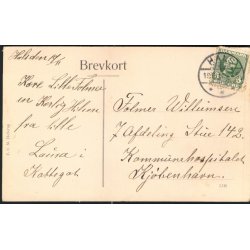 Brevkort
Kære Lille Tolmer
en Kærlig Hilsen
fra lille
Laura i
Kattegat
Tolmer Willumsen
7 Afdeling Stue 142
Kommunehospitalet
Kjøbenhavn